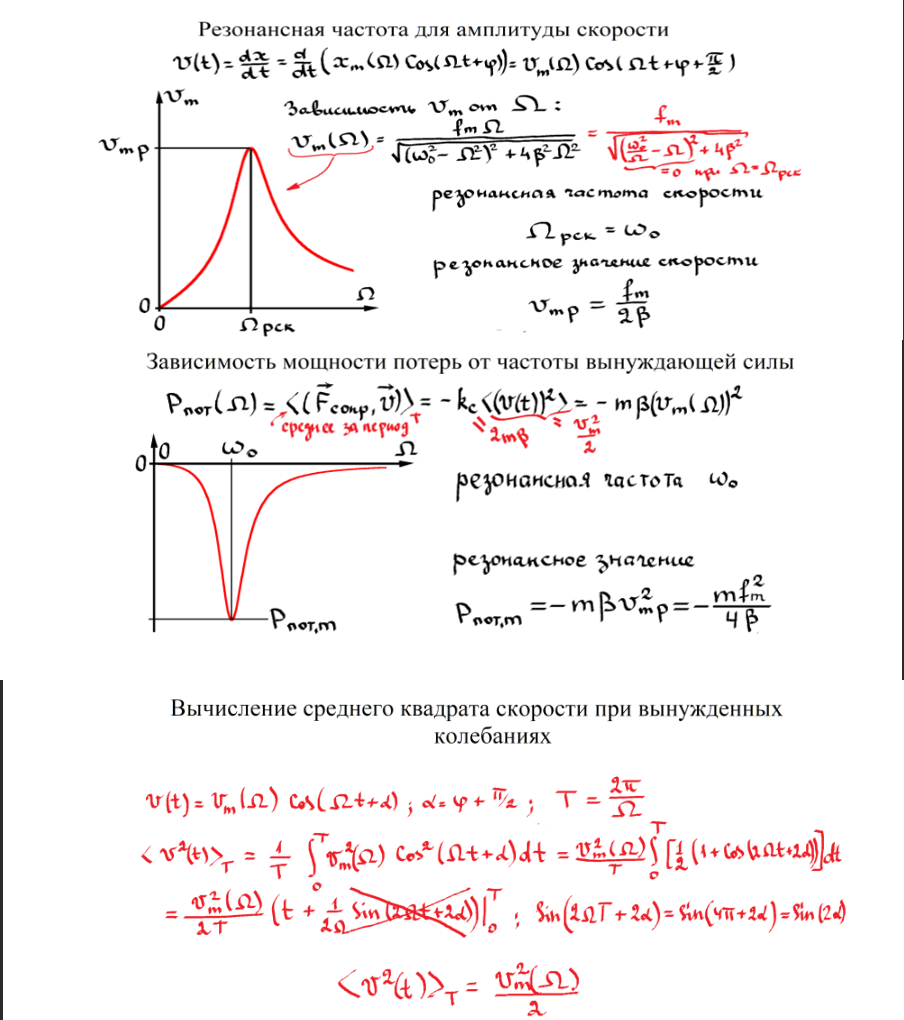 Резонансная частота для амплитуды скорости
v(t) = dx/dt = d/dt (x_m(Ω) Cos(Ωt+φ)) = v_m(Ω) Cos(Ωt+φ+π/2)
v_m
Зависимость v_m от Ω:
v_mp
v_m(Ω) = f_m Ω / √((ω₀² - Ω²)² + 4β²Ω²) = f_m / √((ω₀²/Ω - Ω)² + 4β²)
=0 при Ω=Ω_рск
резонансная частота скорости
Ω_рск = ω₀
резонансное значение скорости
v_mp = f_m / 2β
0
Ω
0
Ω_рск
Зависимость мощности потерь от частоты вынуждающей силы
P_пот(Ω) = ⟨(F⃗_сопр, v⃗)⟩ = - k_c ⟨(v(t))²⟩ = - mβ(v_m(Ω))²
среднее за период T
= 2mβ
= v_m²/2
0
0
ω₀
Ω
резонансная частота ω₀
резонансное значение
P_пот,m
P_пот,m = - mβv²_mp = - mf_m²/4β
Вычисление среднего квадрата скорости при вынужденных
колебаниях
v(t) = v_m(Ω) Cos(Ωt+α); α = φ + π/2; T = 2π/Ω
⟨v²(t)⟩_T = 1/T ∫₀ᵀ v_m²(Ω) Cos²(Ωt+α)dt = v_m²(Ω)/T ∫₀ᵀ [1/2 (1+Cos(2Ωt+2α))]dt
= v_m²(Ω)/2T (t + 1/2Ω Sin(2Ωt+2α))|₀ᵀ; Sin(2ΩT+2α) = Sin(4π+2α) = Sin(2α)
⟨v²(t)⟩_T = v_m²(Ω)/2